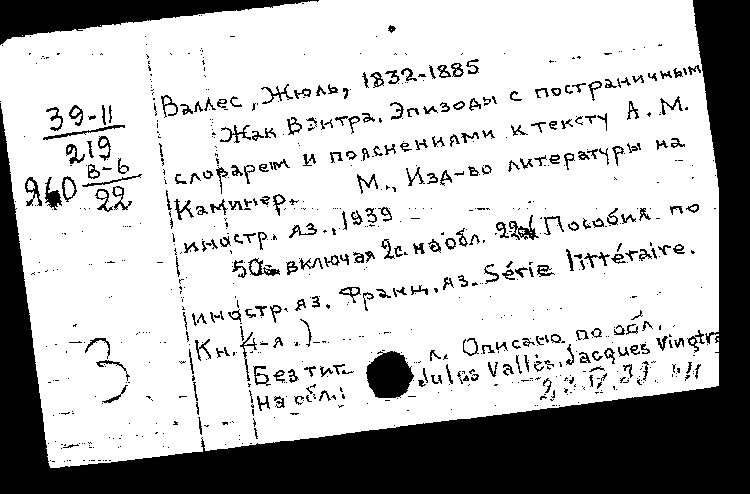 39-11
219
В-6
22
Валлес, Жюль, 1832-1885
Жак Вэнтра. Эпизоды с постраничным
словарем и пояснениями к тексту А. М.
Каминер. М., Изд-во литературы на
иностр. яз., 1939
50с. включая 2с. на обл. 22см (Пособия по
иностр. яз. Франц. яз. Série littéraire.
Кн. 4-я.)
Без тит. л. Описано по обл.
на обл.: Jules Vallès. Jacques Vingtra
3